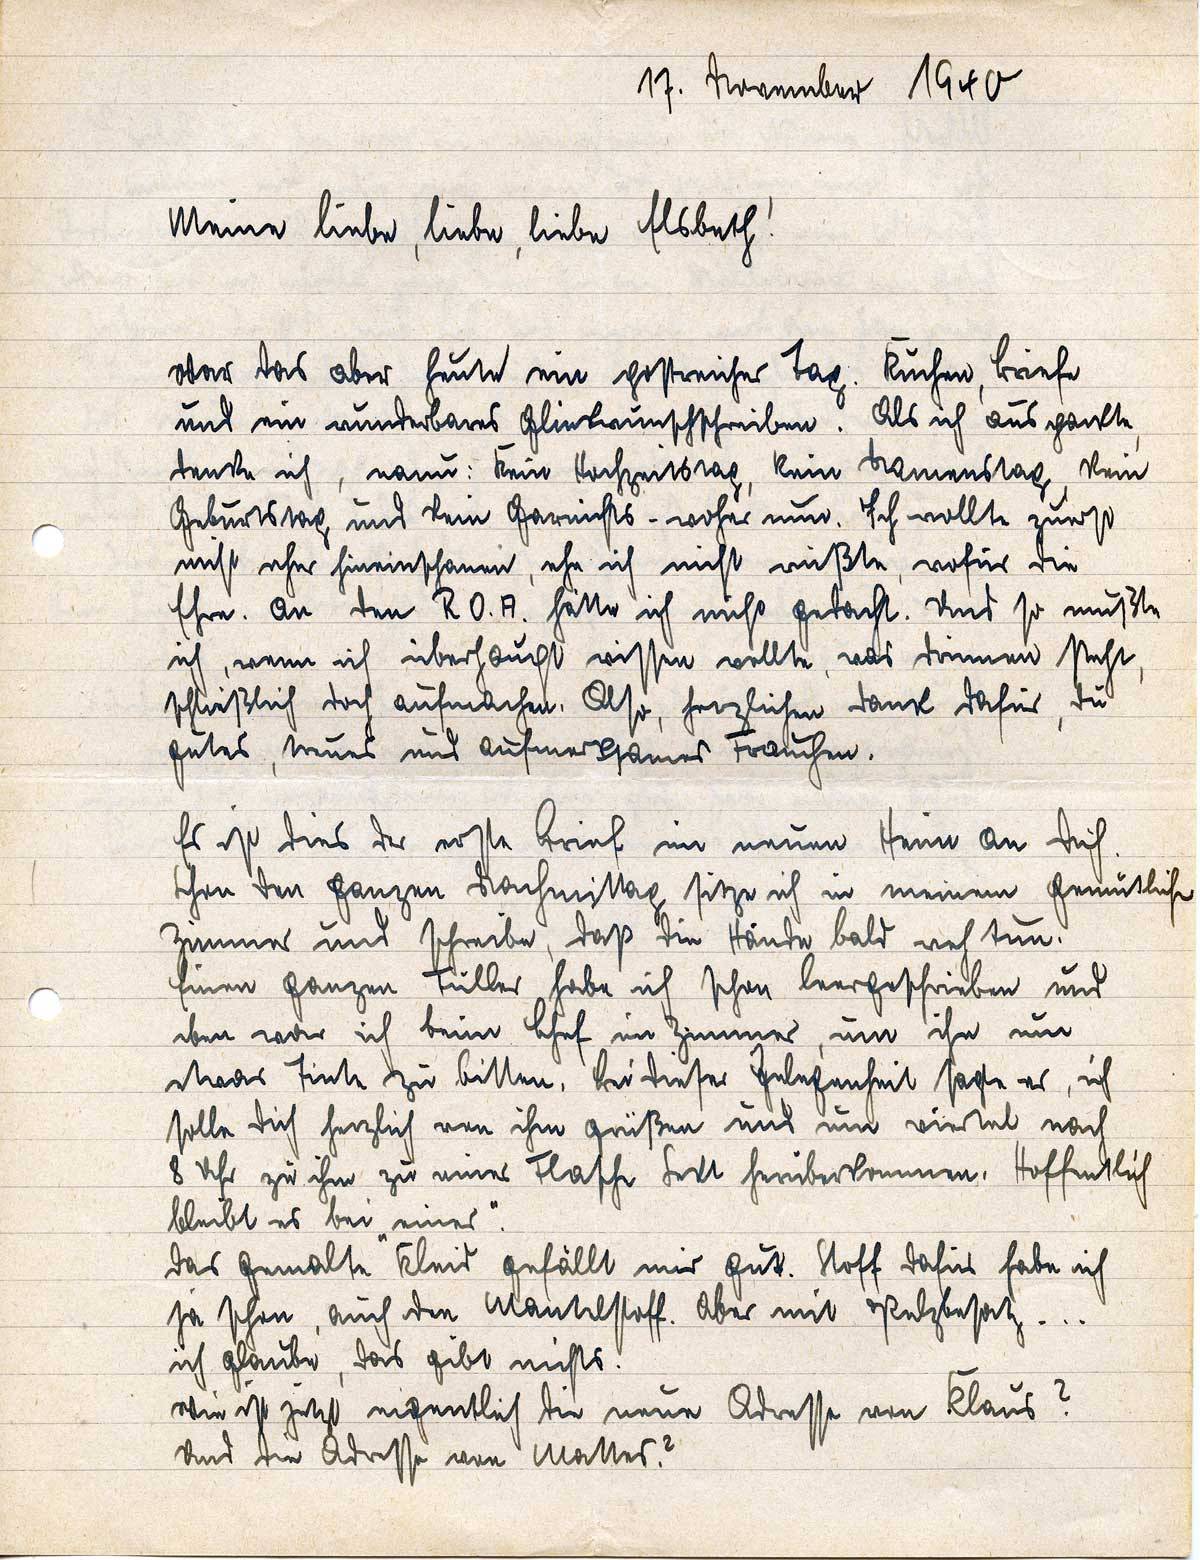 17. November 1940
Meine liebe, liebe, liebe Elsbeth!
War das aber heute ein postreicher Tag. Kuchen, Briefe
und ein wunderbares Glückwunschschreiben. Als ich auspackte,
denke ich, nanu: kein Hochzeitstag, kein Namenstag, kein
Geburtstag und kein Garnichts - woher nun. Ich wollte zuerst
nicht eher hineinschauen, ehe ich nicht wüßte, wofür die
Ehre. An den R.O.A. hätte ich nicht gedacht. Und so mußte
ich, wenn ich überhaupt wissen wollte, was drinnen steht,
schließlich doch aufmachen. Also, herzlichen Dank dafür, du
gutes, treues und aufmerksames Frauchen.
Es ist dies der erste Brief im neuen Heim an Dich.
Schon den ganzen Nachmittag sitze ich in meinem gemütliche
Zimmer und schreibe, daß die Hände bald weh tun.
Einen ganzen Füller habe ich schon leergeschrieben und
eben war ich beim Chef im Zimmer, um ihn um
etwas Tinte zu bitten. Bei dieser Gelegenheit sagte er, ich
solle Dich herzlich von ihm grüßen und um viertel nach
8 Uhr zu ihm zu einer Flasche Sekt herüberkommen. Hoffentlich
bleibt es bei „einer".
Das gemalte Kleid gefällt mir gut. Stoff dafür habe ich
ja schon, auch den Mantelstoff. Aber mit Pelzbesatz ...
ich glaube, das gibt nichts.
Wie ist jetzt eigentlich die neue Adresse von Klaus?
Und die Adresse von